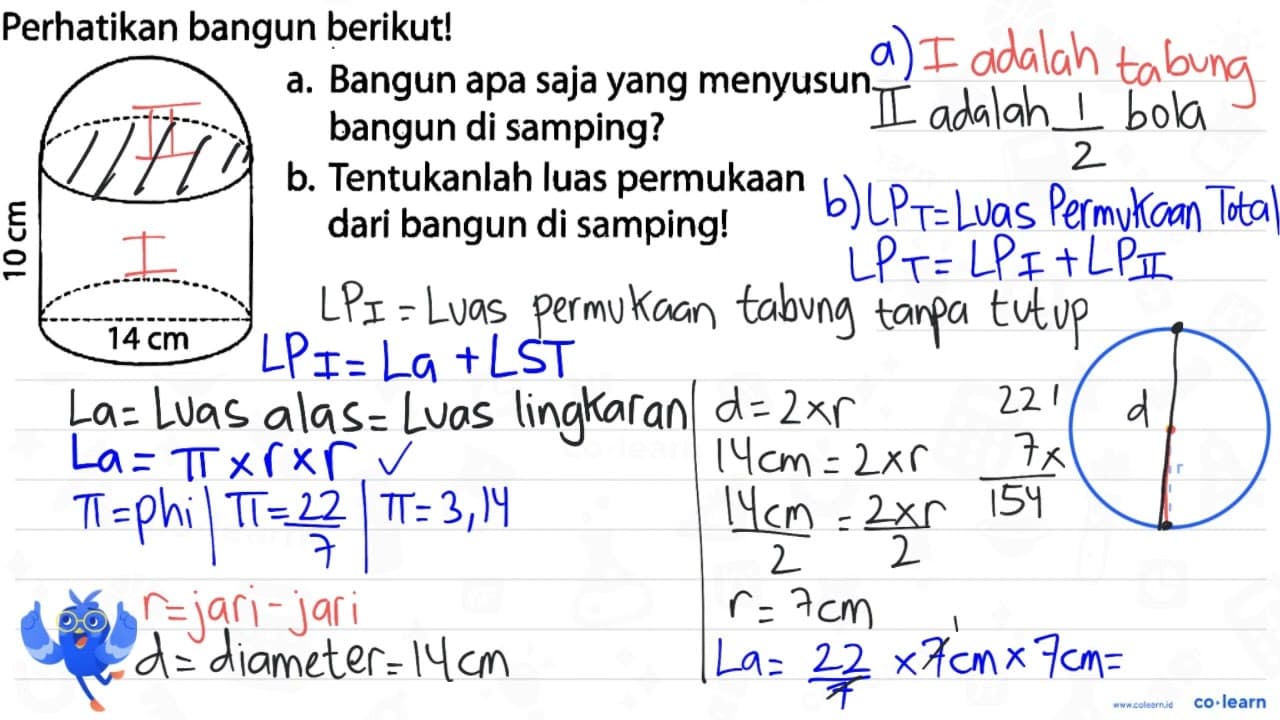 Perhatikan bangun berikut!
a. Bangun apa saja yang menyusun
bangun di samping?
b. Tentukanlah luas permukaan
dari bangun di samping!
II
I
10 cm
14 cm
a) I adalah tabung
II adalah 1/2 bola
b) LPT = Luas Permukaan Total
LPT = LPI + LPII
LPI = Luas permukaan tabung tanpa tutup
LPI = La + LST
La = Luas alas = Luas lingkaran
La = π x r x r ✓
π = phi | π = 22/7 | π = 3,14
r = jari-jari
d = diameter = 14 cm
d = 2 x r
14 cm = 2 x r
14 cm/2 = 2 x r/2
r = 7 cm
La = 22/7 x 7 cm x 7 cm =
1
22 1
7 x
154
d
r
www.colearn.id
co·learn